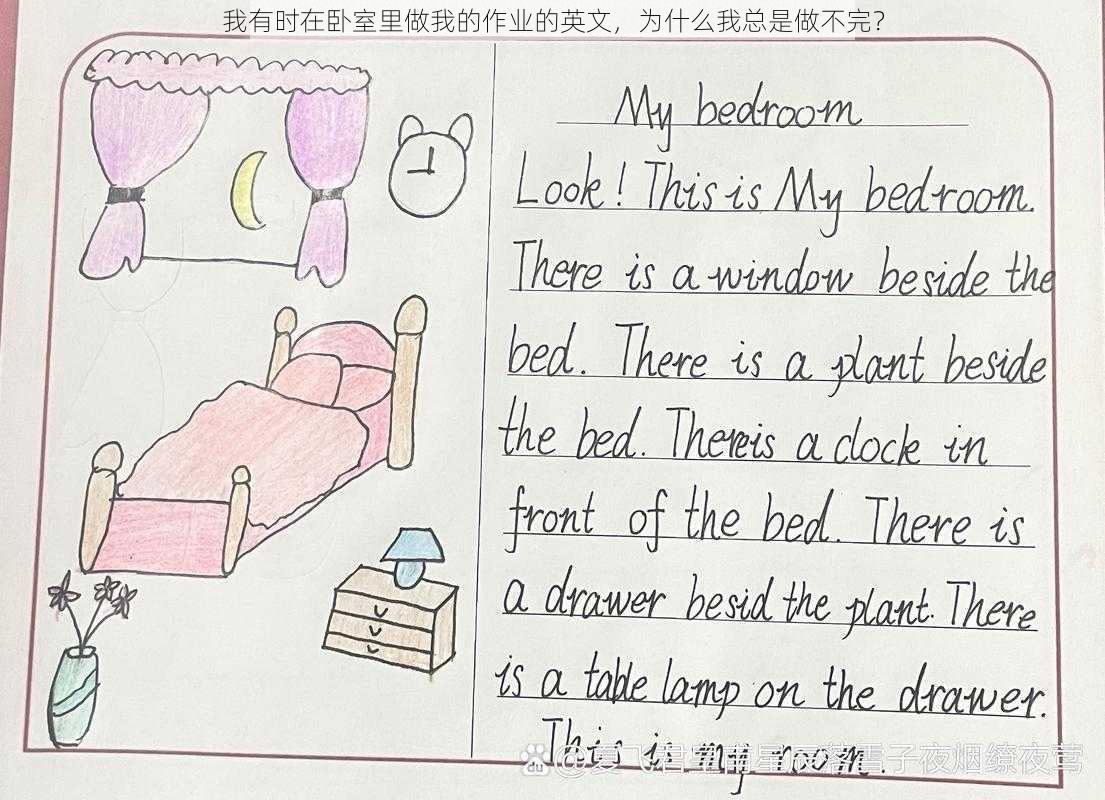 我有时在卧室里做我的作业的英文，为什么我总是做不完？
My bedroom
Look! This is My bedroom.
There is a window beside the
bed. There is a plant beside
the bed. Thereis a clock in
front of the bed. There is
a drawer besid the plant. There
is a table lamp on the drawer.
This is my room.